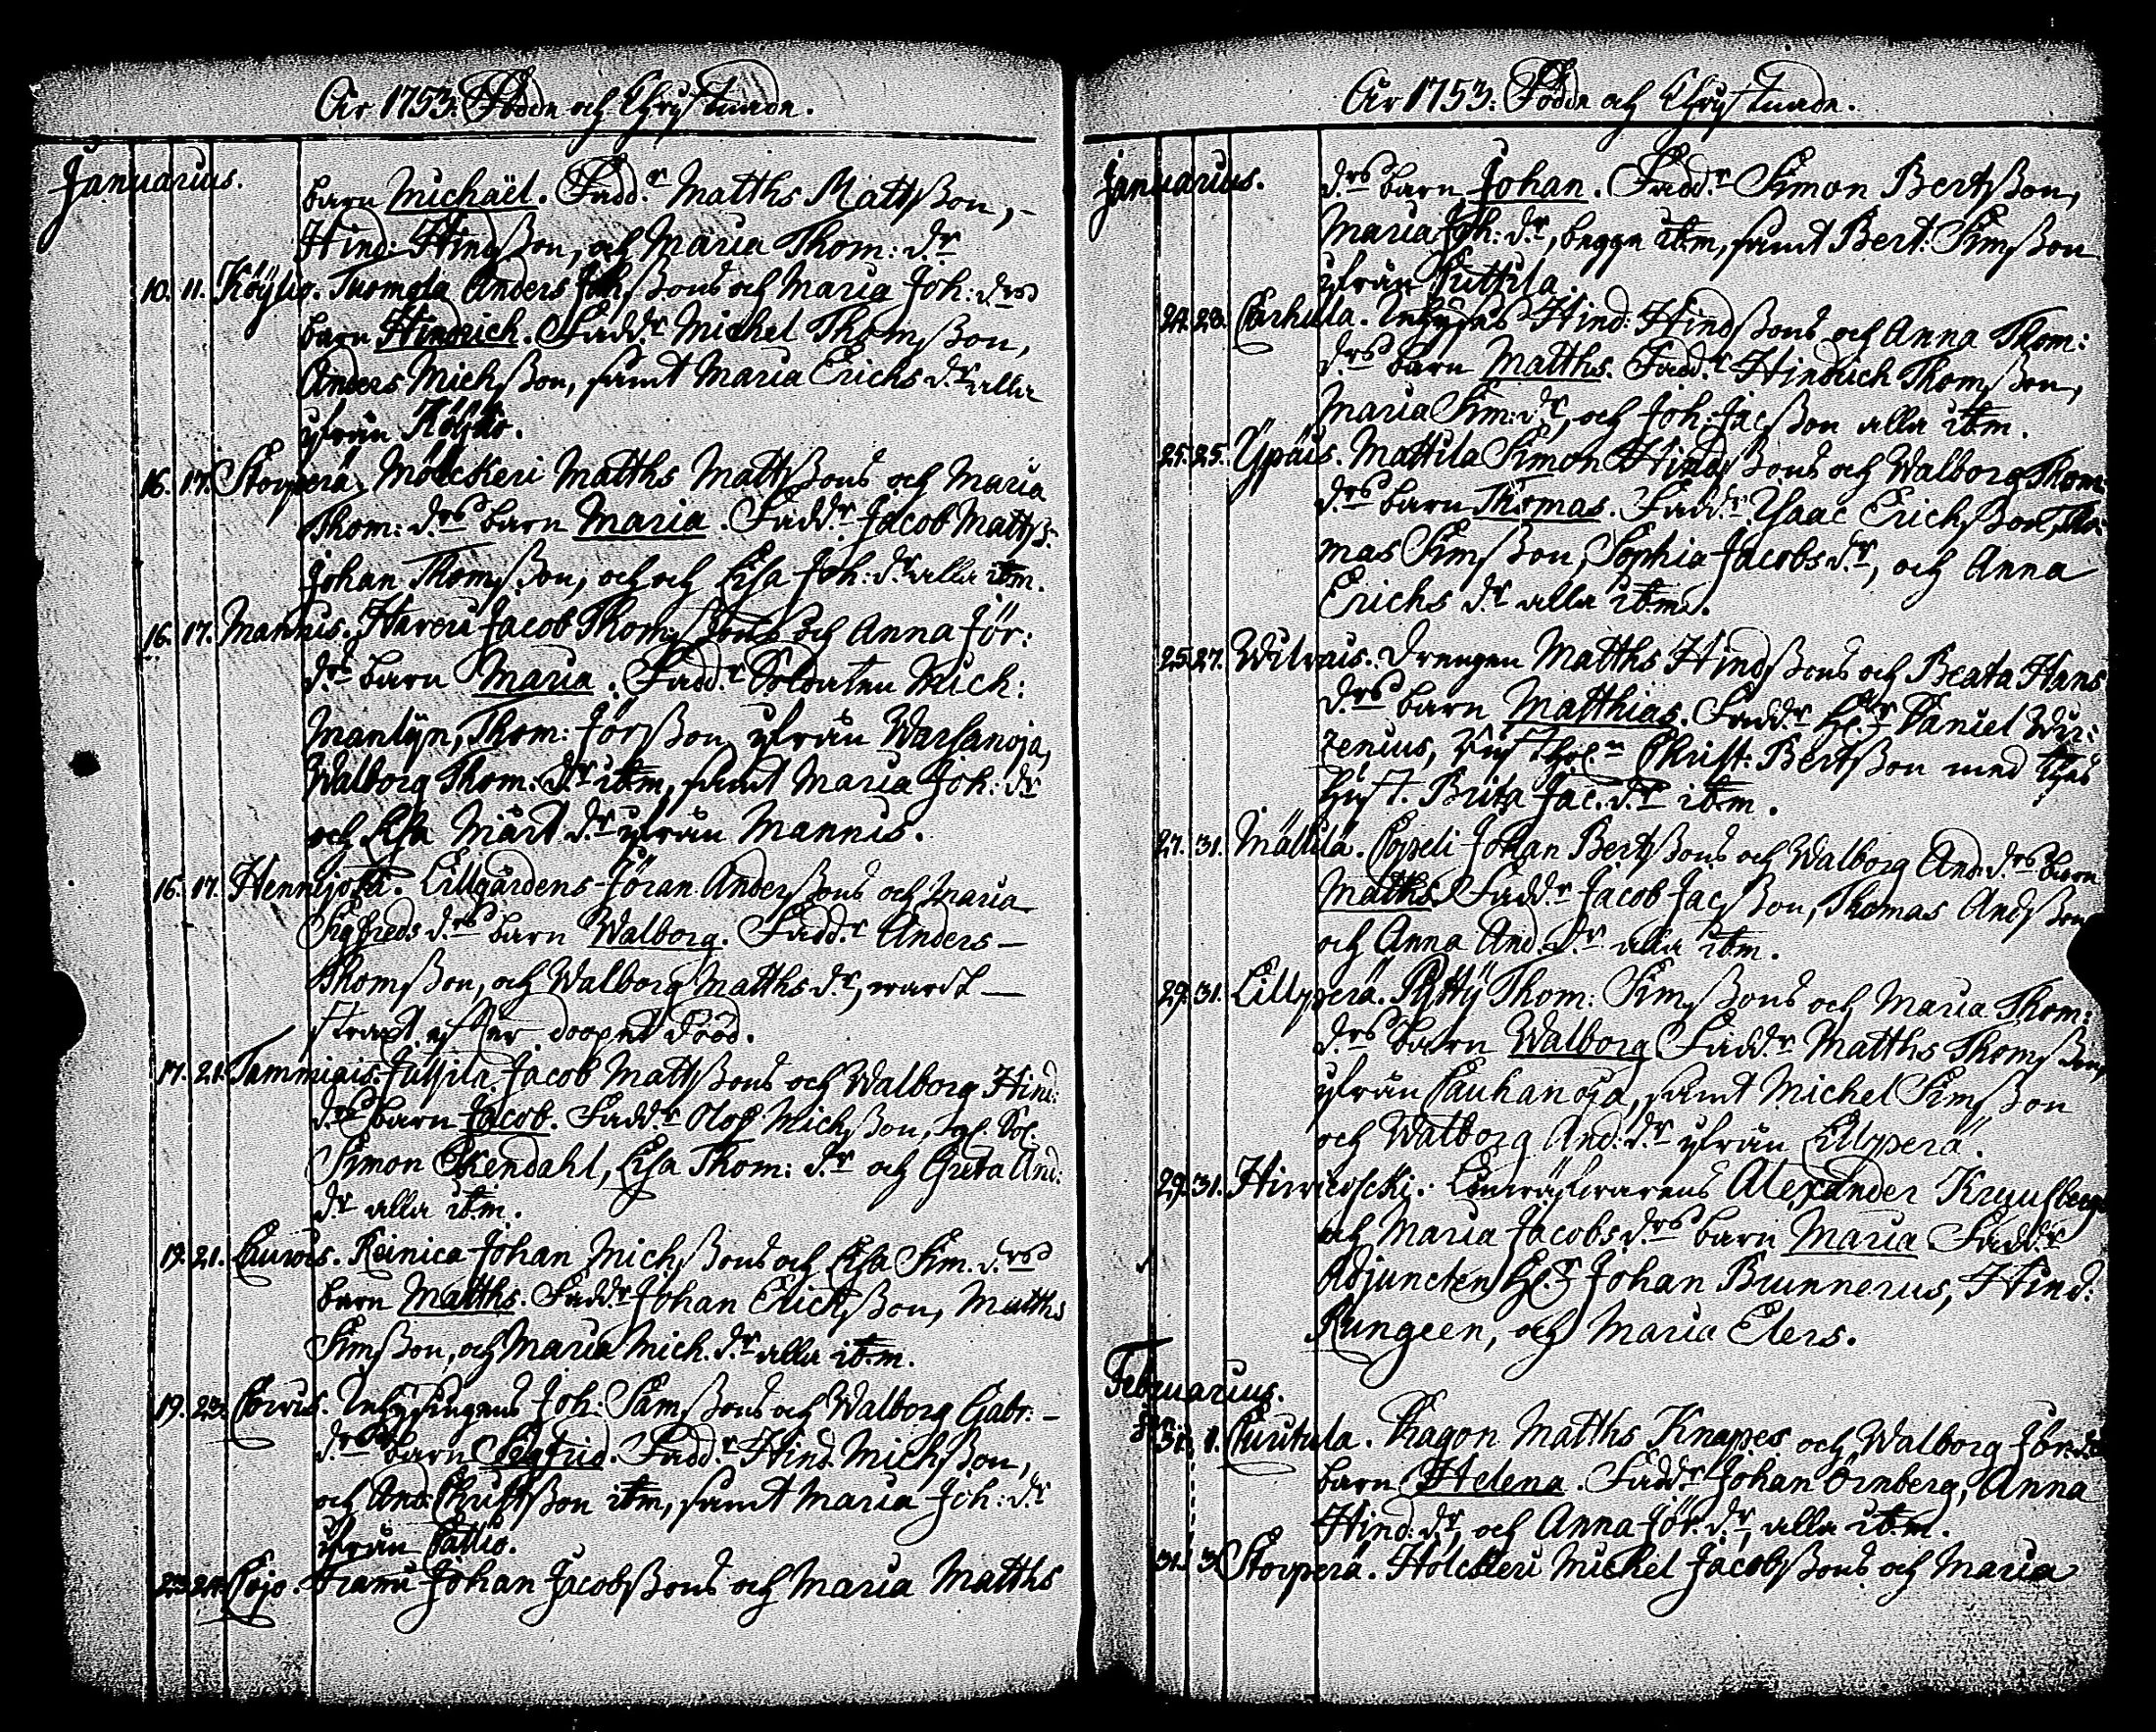 År 1753. Födde och Christnade.
Januarius.
barn Michaël. Fadd.r Matths Mattsson,
Hind: Hindsson, och Maria Thom: d.r
10. 11. Köÿlio. Tuomola Anders Johssons och Maria Joh: d.rs
barn Hindrich. Fadd.r Michel Thomsson,
Anders Michsson, samt Maria Erichs d.r alla
ifrån Köÿlio.
16. 17. Storperä. Mölckeri Matths Mattssons och Maria
Thom: d.rs barn Maria. Fadd.r Jacob Mattss.
Johan Thomsson, och och Lisa Joh: d.r alla itm.
16. 17. Mannis. Haveri Jacob Thomssons och Anna Jör:
d.rs barn Maria. Fadd.r Soldaten Mich:
Manlÿn, Thom: Jörsson ifrån Warsanoja,
Walborg Thom: d.r itm, samt Maria Joh: d.r
och Lisa Märt d.r ifrån Mannis.
16. 17. Hennijoki. Lillgårdens Jöran Anderssons och Maria
Sigfreds d.rs barn Walborg. Fadd.r Anders
Thomsson, och Walborg Matths d.r, wardt
strax efter doopet dööd.
17. 21. Tammiais. Jussila Jacob Mattssons och Walborg Hind:
d.rs barn Jacob. Fadd.r Olof Michsson, Sol.
Simon Ekendahl, Lisa Thom: d.r och Greta And:
d.r alla itm.
19. 21. Laurois. Reinica Johan Michssons och Lisa Sim. d.rs
barn Matths. Fadd.r Johan Erichsson, Matths
Simsson, och Maria Mich. d.r alla itm.
19. 23. Corvis. Inhysingens Joh: Samssons och Walborg Gabr:
d.rs barn Sigfrid. Fadd.r Hind. Michsson,
och And: Christsson itm, samt Maria Joh: d.r
ifrån Cattio.
23. 24. Cojo. Frami Johan Jacobssons och Maria Matths
År 1753. Födde och Christnade.
Januarius.
d.rs barn Johan. Fadd.r Simon Bertsson,
Maria Joh: d.r, begge itm, samt Bert: Simsson
ifrån Puttila.
22. 23. Carhula. Inhyses Hind: Hindssons och Anna Thom:
d.rs barn Matths. Fadd.r Hindrich Thomsson,
Maria Sim: d.r, och Joh: Jacsson alla itm.
25. 25. Ÿpäis. Mattila Simon Hindssons och Walborg Thom:
d.rs barn Thomas. Fadd.r Isaac Erichsson, Tho:
mas Simsson, Sophia Jacobs d.r, och Anna
Erichs d.r alla itm.
25. 27. Wilvais. Drengen Matths Hindssons och Beata Hans
d.rs barn Matthias. Fadd.r H.r Daniel Wi:
zenius, Christ: Bertsson med thes
hust. Brita Jac. d.r itm.
27. 31. Mällilä. Poppeli Johan Bertssons och Walborg And: d.rs barn
Matths. Fadd.r Jacob Jacsson, Thomas Andsson
och Anna And. d.r alla itm.
29. 31. Lillperä. Pytty Thom: Simssons och Maria Thom:
d.rs barn Walborg. Fadd.r Matths Thomsson,
ifrån Cauhanoja, samt Michel Simsson
och Walborg And: d.r ifrån Lillperä.
29. 31. Hirvicoscki. Alexander
och Maria Jacobs d.rs barn Maria. Fadd.r
Adjuncten H.r Johan Brunnerus, Hind:
Rungeen, och Maria Elers.
Februarius.
Jan:
31. 1. Curitula. Ragon Matths Knapes och Walborg Jör: d.rs
barn Helena. Fadd.r Johan Örnberg, Anna
Hind: d.r, och Anna Jör. d.r, alla itm.
31. 3. Storperä. Hölckeri Michel Jacobssons och Maria